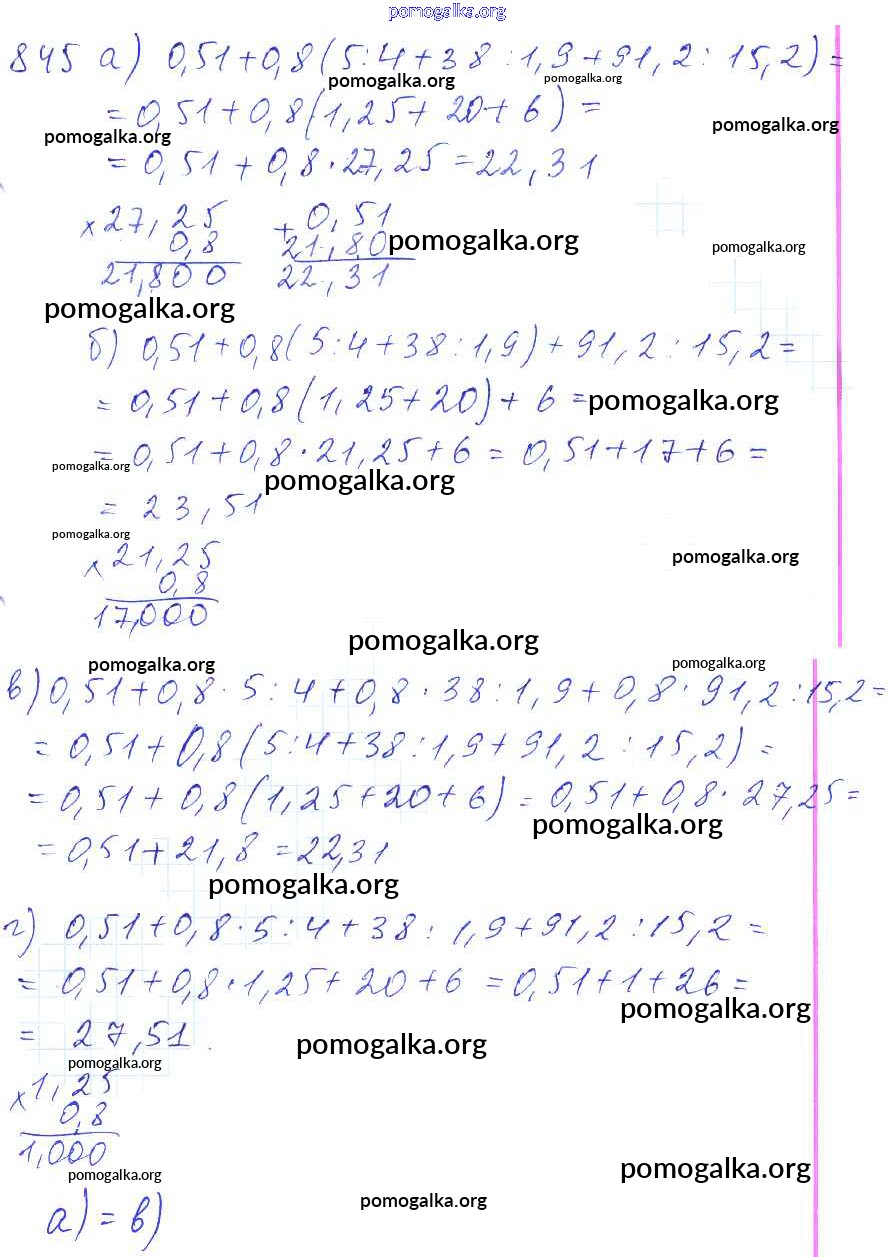 pomogalka.org
845 а) 0,51+0,8(5:4+38:1,9+91,2:15,2)=
pomogalka.org pomogalka.org
=0,51+0,8(1,25+20+6)=
pomogalka.org pomogalka.org
=0,51+0,8·27,25=22,31
×27,25 +0,51
0,8 21,80 pomogalka.org pomogalka.org
21,800 22,31
pomogalka.org
б) 0,51+0,8(5:4+38:1,9)+91,2:15,2=
=0,51+0,8(1,25+20)+6= pomogalka.org
=0,51+0,8·21,25+6=0,51+17+6=
pomogalka.org pomogalka.org
=23,51
pomogalka.org
×21,25 pomogalka.org
0,8
17,000
pomogalka.org
pomogalka.org pomogalka.org
в) 0,51+0,8·5:4+0,8·38:1,9+0,8·91,2:15,2=
=0,51+0,8(5:4+38:1,9+91,2:15,2)=
=0,51+0,8(1,25+20+6)=0,51+0,8·27,25=
pomogalka.org
=0,51+21,8=22,31
pomogalka.org
г) 0,51+0,8·5:4+38:1,9+91,2:15,2=
=0,51+0,8·1,25+20+6=0,51+1+26=
pomogalka.org
=27,51
pomogalka.org
pomogalka.org
×1,25
0,8
1,000
pomogalka.org
pomogalka.org
pomogalka.org
а)=в)